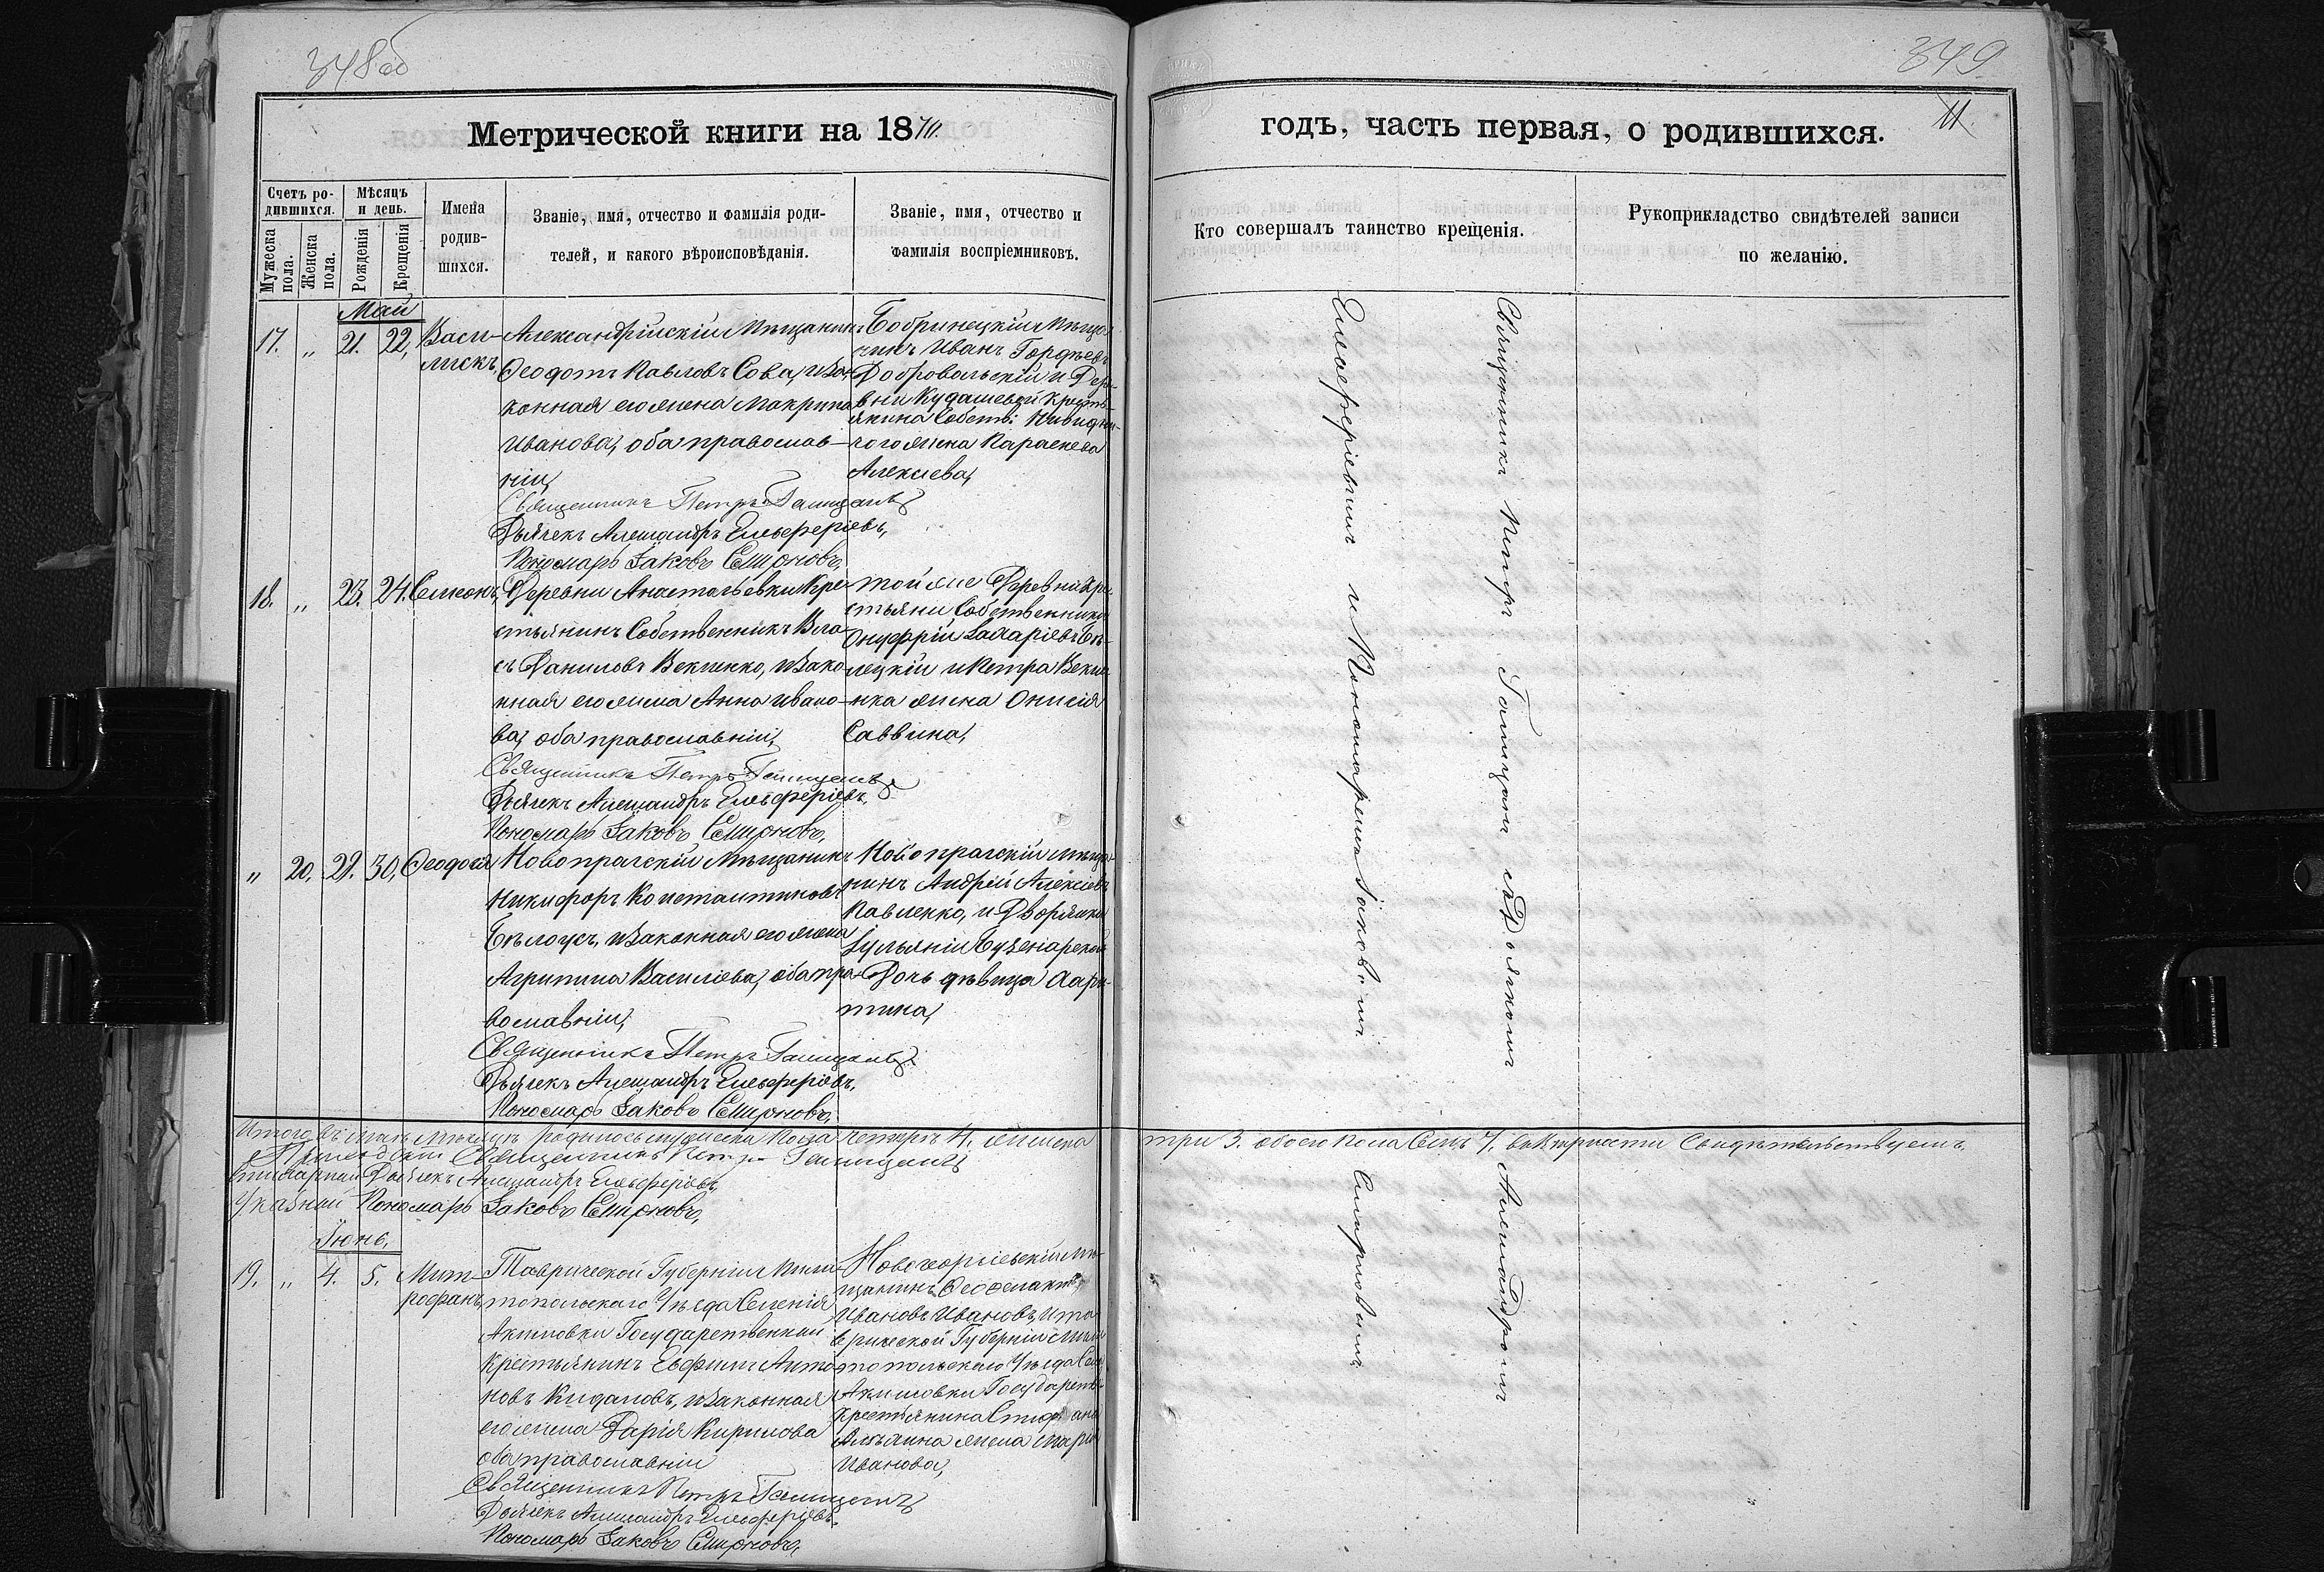 348об
Метрической книги на 1870.
Счетъ ро-
дившихся.
Мѣсяцъ
и день.
Мужеска
пола.
Женска
пола.
Рожденія
Крещенія
Имена
родив-
шихся.
Званіе, имя, отчество и фамилія роди-
телей, и какого вѣроисповѣданія.
Званіе, имя, отчество и
фамилія воспріемниковъ.
Май
17. „ 21. 22,
Васи-
лискъ,
Александрійскій Мѣщанинъ
Ѳеодотъ Павловъ Сова, и За-
конная его жена Макрина
Иванова, оба православ-
ніи,
Священникъ Петръ
Дьячекъ Александръ Елеѳеріевъ,
Пономарь Іаковъ Смирновъ,
Бобринецкій Мѣща-
нинъ Иванъ Гордѣевъ
Добровольскій и Дере-
вни Кудашевой Кресть-
янина Собств:
жена Параскева
Алексіева,
18. „ 23. 24. Симеонъ,
Деревни Анатольевки Кре-
стьянинъ Собственникъ Вла-
съ Даниловъ Векленко, и Зако-
нная его жена Анна Ивано-
ва, оба православніи,
Священникъ Петръ
Дьячекъ Александръ Елеѳеріевъ,
Пономарь Іаковъ Смирновъ,
той же Деревни Кре-
стьяни Собственники
Онуфрій Захаріевъ Бѣ-
лецкій и Петра Векле-
нка жена Онисія
Саввина,
„ 20. 29. 30, Ѳеодосія
Новопрагскій Мѣщанинъ
Никифоръ Константиновъ
Бѣлоусъ, и Законная его жена
Агрипина Василіева, оба пра-
вославніи,
Священникъ Петръ
Дьячекъ Александръ Елеѳеріевъ,
Пономарь Іаковъ Смирновъ,
Новопрагскій Мѣща-
нинъ Андрей Алексіевъ
Павленко, и Дворянки
Іульяніи
Дочь дѣвица
Итого въ Маѣ Мѣсяцѣ родилось мужеска пола четыре 4, женска
Священникъ Петръ
Дьячекъ Александръ Елеѳеріевъ,
Указный Пономарь Іаковъ Смирновъ,
Іюнь,
19. „ 4. 5. Мит-
рофанъ,
Таврической Губерніи Мели-
топольскаго Уѣзда Селенія
Акимовки Государственный
Крестьянинъ Евфимъ Анто-
новъ Кидаловъ, и Законная
его жена Дарія Кирилова
оба православніи
Священникъ Петръ
Дьячекъ Александръ Елеѳеріевъ,
Пономарь Іаковъ Смирновъ,
Новогеоргіевскій Мѣ-
щанинъ Ѳеофилактъ
Ивановъ Ивановъ, и Та-
врической Губерніи Мели-
топольскаго Уѣзда Сел.
Акимовки Государств.
Крестьянина Стефана
жена Марія
Иванова,
349
11
годъ, часть первая, о родившихся.
Кто совершалъ таинство крещенія.
Рукоприкладство свидѣтелей записи
по желанію.
Священникъ Петръ съ Дьячкомъ Александромъ
Елеѳеріевымъ и Пономаремъ Іаковомъ Смирновымъ
три 3. обоего пола Семь 7. въ вѣрности Свидѣтельствуемъ,